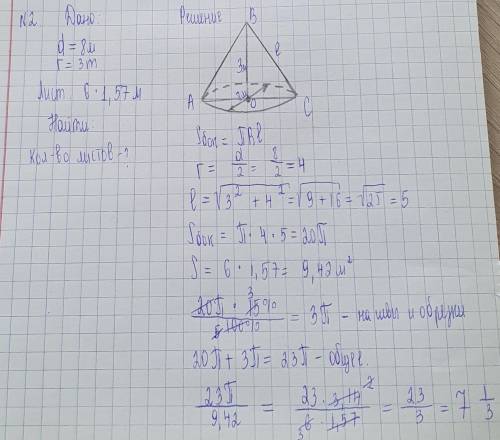 N2 Дано:
d = 8м
r = 3m
Лист 6 · 1,57 м
Найти
Кол-во листов - ?
Решение
B
3м
ℓ
A
O
C
Sбок = πRℓ
r = d/2 = 8/2 = 4
ℓ = √3² + 4² = √9 + 16 = √25 = 5
Sбок = π · 4 · 5 = 20π
S = 6 · 1,57 = 9,42 м²
20π · 15% 3 / 100% 5 = 3π - на швы и обрезки
20π + 3π = 23π - общее.
23π / 9,42 = 23 · 3,14 2 / 6 3 · 1,57 = 23/3 = 7 1/3